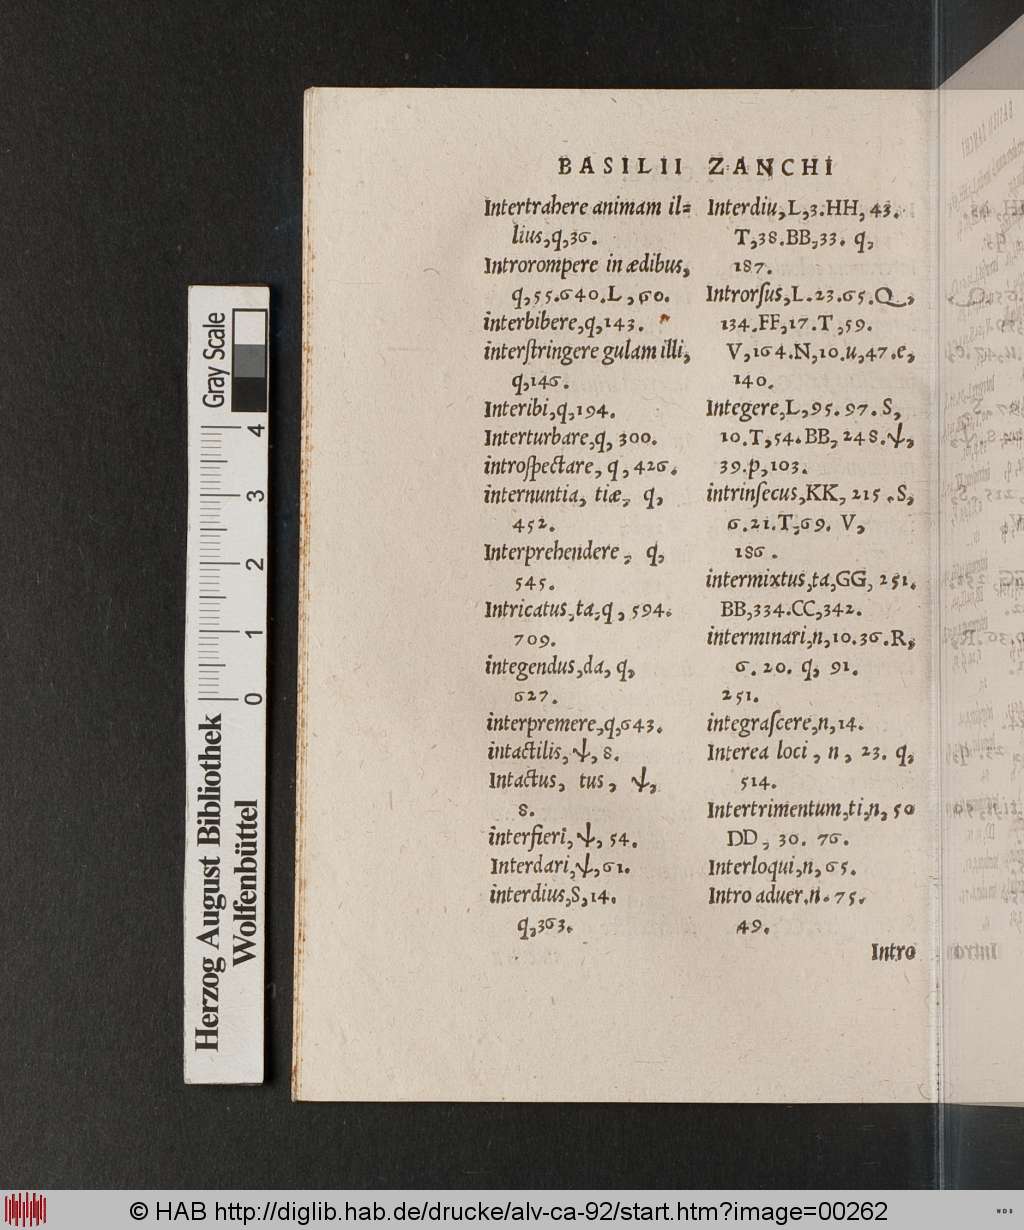 BASILII ZANCHI
Intertrahere animam il=
lius,q,36.
Introrompere in ædibus,
q,55.640.L,60.
interbibere,q,143.
interſtringere gulam illi,
q,146.
Interibi,q,194.
Interturbare,q, 300.
introſpectare, q, 426.
internuntia, tiæ, q,
452.
Interprehendere, q,
545.
Intricatus,ta,q, 594.
709.
integendus,da, q,
627.
interpremere,q,643.
intactilis,ψ, 8.
Intactus, tus, ψ,
8.
interfieri,ψ, 54.
Interdari,ψ,61.
interdius,S,14.
q,363.
Interdiu,L,3.HH, 43.
T,38.BB,33. q,
187.
Introrſus,L.23.65.Q,
134.FF,17.T,59.
V,164.N,10.u,47.e,
140.
Integere,L,95.97.S,
10.T,54.BB,248.ψ,
39.p,103.
intrinſecus,KK, 215.S,
6.21.T,69. V,
186.
intermixtus,ta,GG, 251.
BB,334.CC,342.
interminari,n,10.36.R,
6.20. q, 91.
251.
integraſcere,n,14.
Interea loci, n, 23. q,
514.
Intertrimentum,ti,n, 50
DD, 30. 76.
Interloqui,n,65.
Intro aduer.n.75.
49.
Intro
Gray Scale
0 1 2 3 4
Herzog August Bibliothek
Wolfenbüttel
© HAB http://diglib.hab.de/drucke/alv-ca-92/start.htm?image=00262